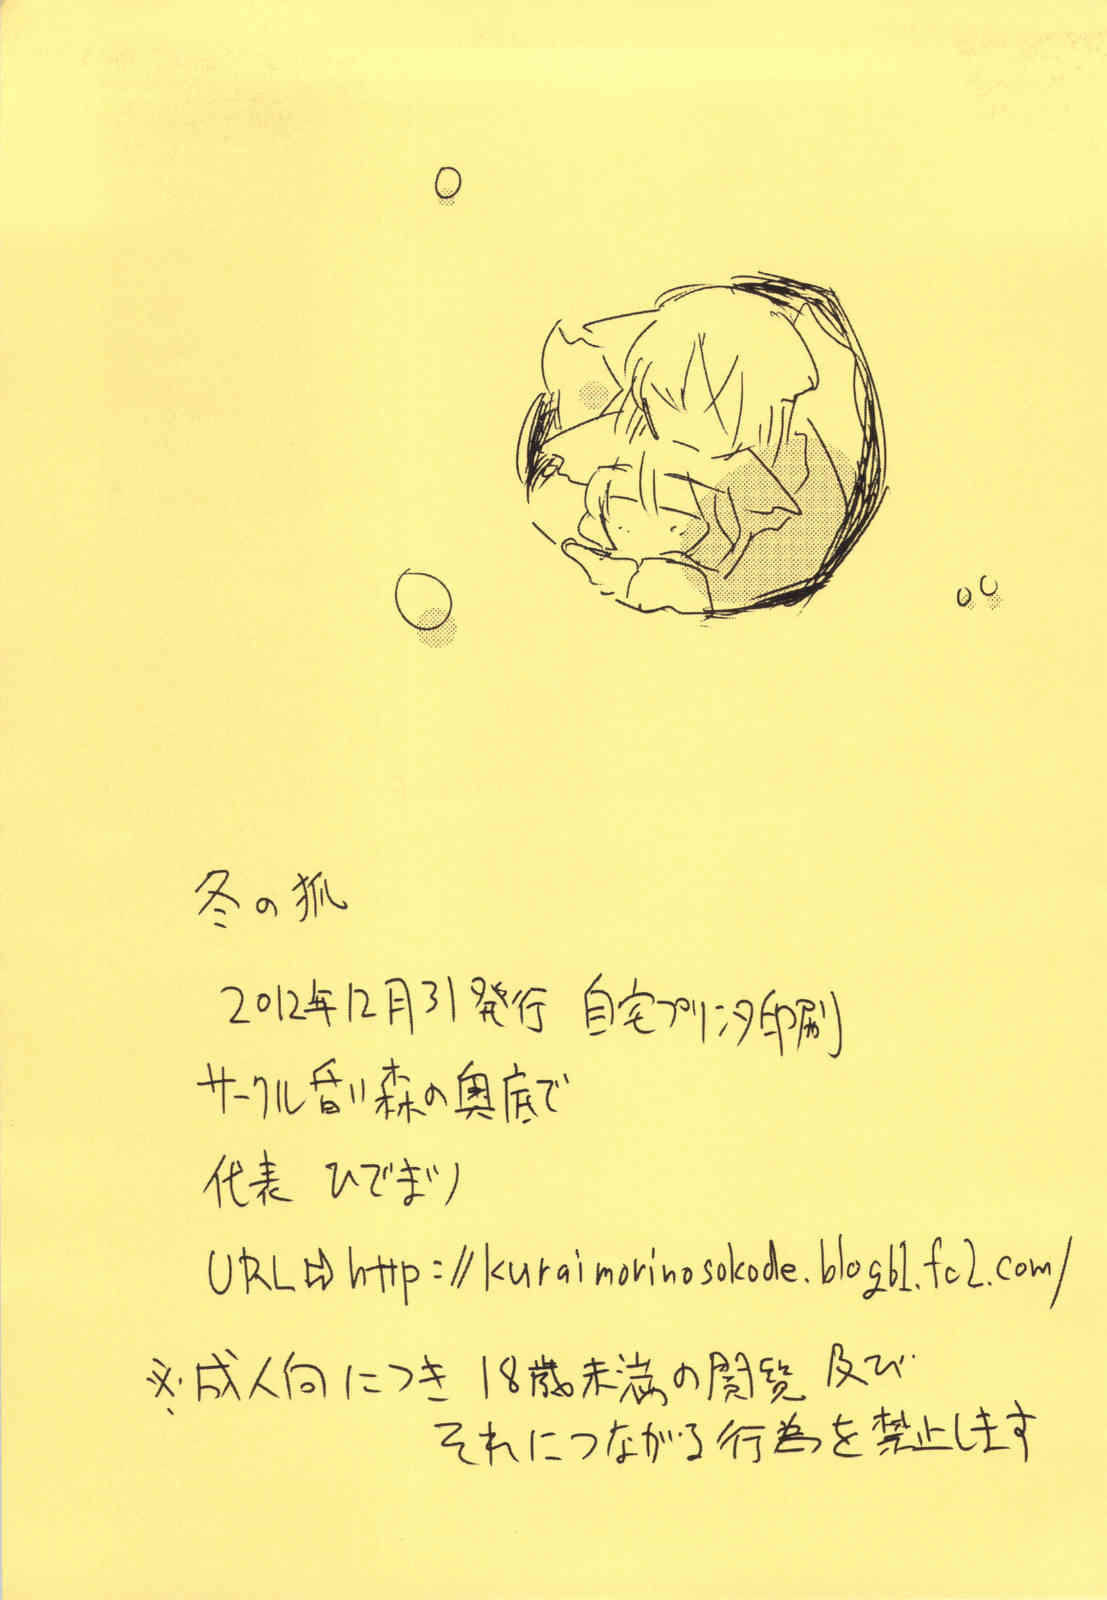 冬の狐
2012年12月31発行 自宅プリンタ印刷
サークル 暗い森の奥底で
代表 ひでまり
URL⇨http://kuraimorinosokode.blog61.fc2.com/
※成人向につき 18歳未満の閲覧 及び
それにつながる行為を禁止します